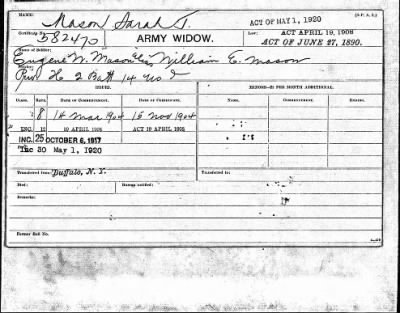 NAME: Mason Sarah T. ACT OF MAY 1, 1920 (O.P.A.S.)
Certificate 582470 ARMY WIDOW. Law: ACT APRIL 19, 1908
ACT OF JUNE 27, 1890.
Name of Soldier: Eugene W. Mason William E. Mason
Priv H 2 Batt 14
ISSUES. MINORS—$2 PER MONTH ADDITIONAL.
CLASS. RATE. DATE OF COMMENCEMENT. DATE OF CERTIFICATE. NAME. COMMENCING. ENDING.
8 14 Mar 1904 15 Nov 1904
ENC. 12 19 APRIL 1908 ACT 19 APRIL 1908
INC. 25 OCTOBER 6, 1917
30 May 1, 1920
Transferred from: Buffalo, N. Y. Transferred to:
Died: Bureau notified:
Remarks:
Former Roll No.